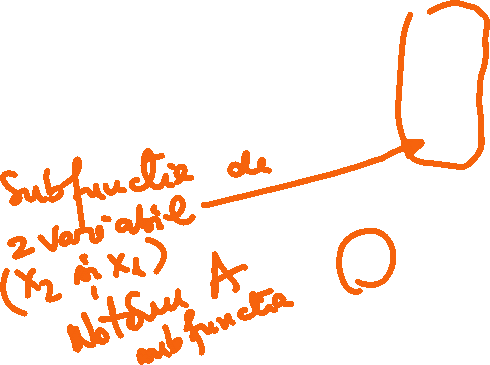 Subfuncție de
2 variabile
(x2 și x1)
Notăm A
subfuncția